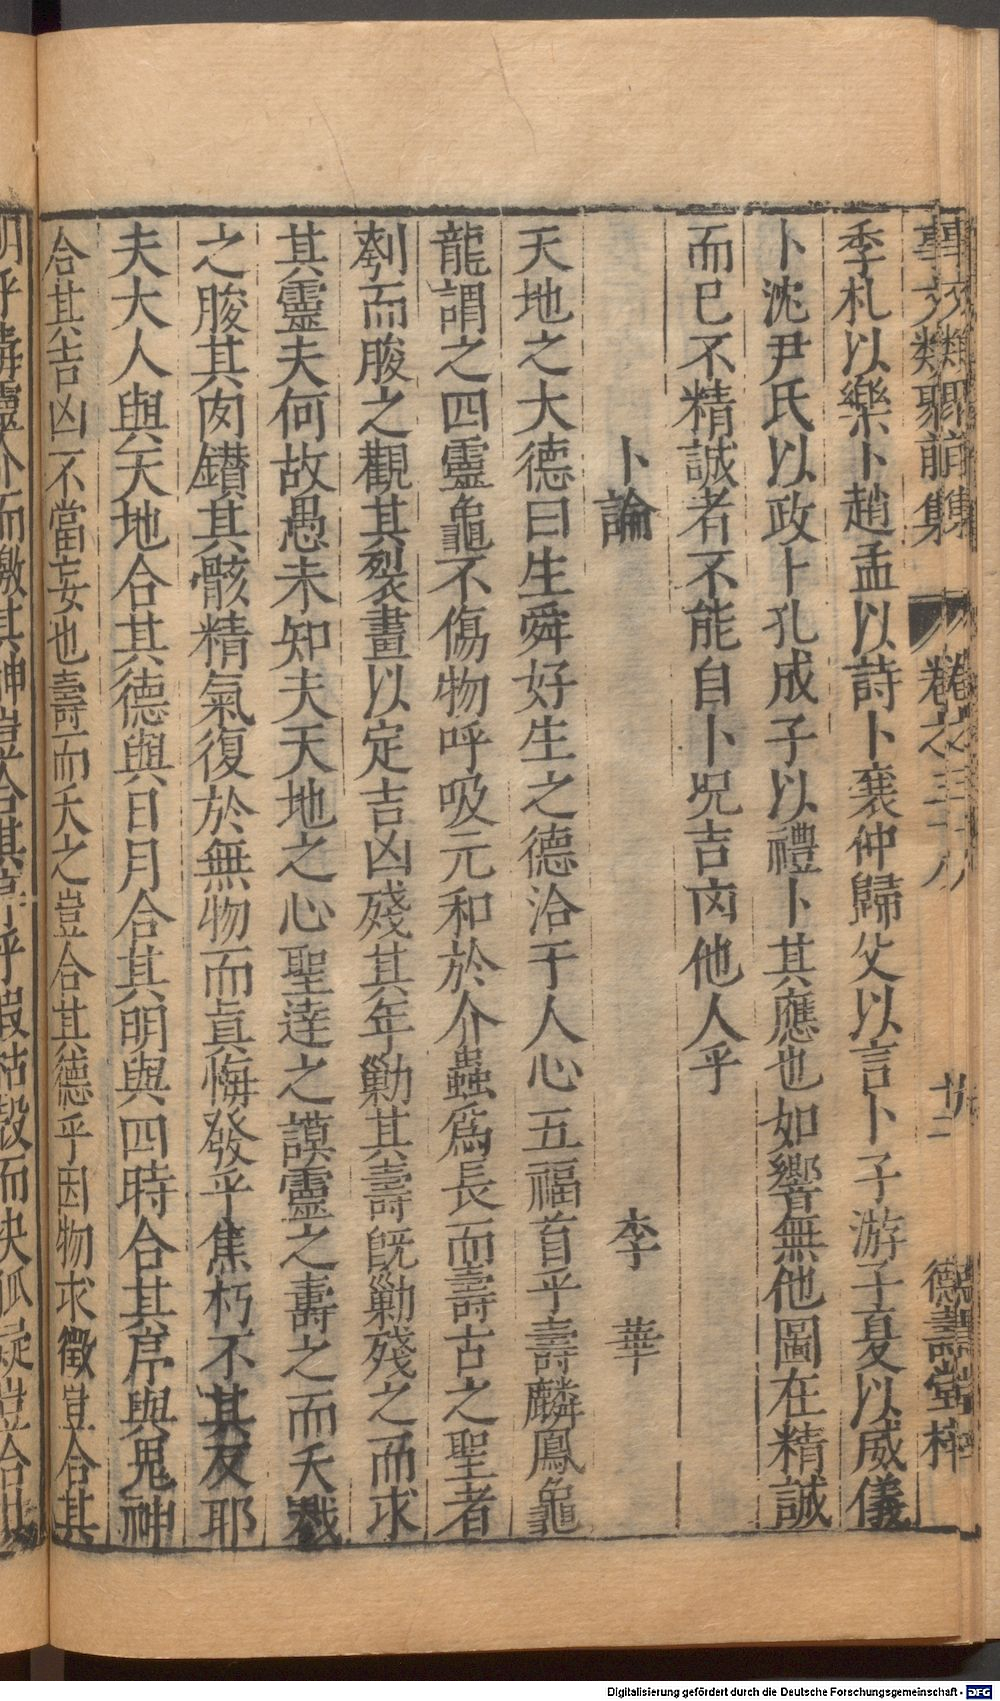 事文類聚前集 卷之三十八 廿一 德壽堂梓
季札以樂卜趙孟以詩卜襄仲歸父以言卜子游子夏以威儀
卜沈尹氏以政卜孔成子以禮卜其應也如響無他圖在精誠
而已不精誠者不能自卜况吉凶他人乎
卜論 李華
天地之大德曰生舜好生之德洽于人心五福首乎壽麟鳳龜
龍謂之四靈龜不傷物呼吸元和於介蟲爲長而壽古之聖者
刳而朘之觀其裂畫以定吉凶殘其年勦其壽旣勦殘之而求
其靈夫何故愚未知夫天地之心聖達之謨靈之壽之而夭戮
之朘其肉鑚其骸精氣復於無物而眞悔發乎焦朽不其反耶
夫大人與天地合其德與日月合其明與四時合其序與鬼神
合其吉凶不當妄也壽而夭之豈合其德乎因物求徵豈合其
明乎毒靈介而徼其神豈合其序乎假枯殼而決狐疑豈合其
Digitalisierung gefördert durch die Deutsche Forschungsgemeinschaft - DFG